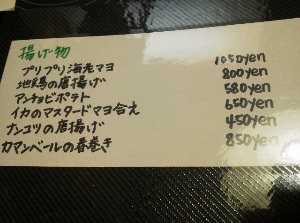 揚げ物
プリプリ海老マヨ 1050yen
地鶏の唐揚げ 800yen
アンチョビポテト 580yen
イカのマスタードマヨ合え 650yen
ナンコツの唐揚げ 450yen
カマンベールの春巻き 850yen